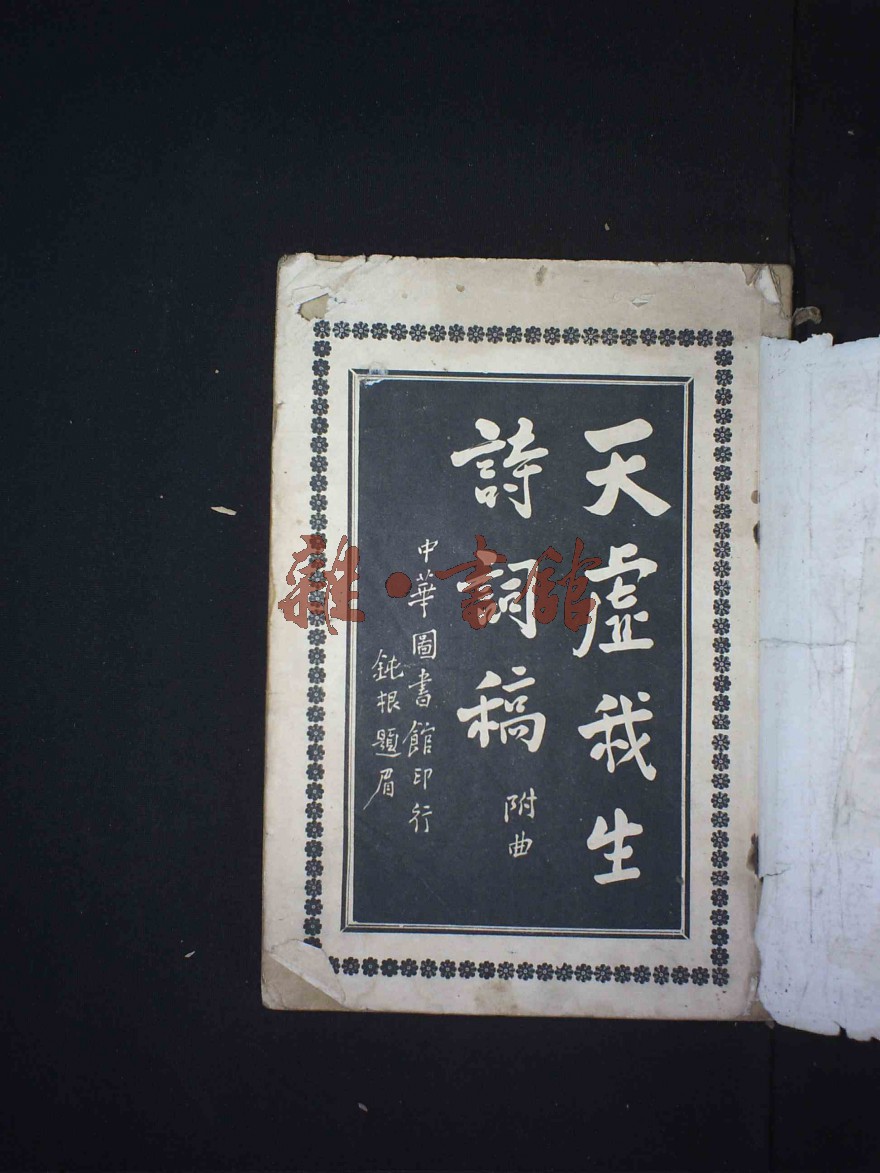 天虛我生
詩詞稿
附曲
中華圖書館印行
鈍根題眉
雜·書館